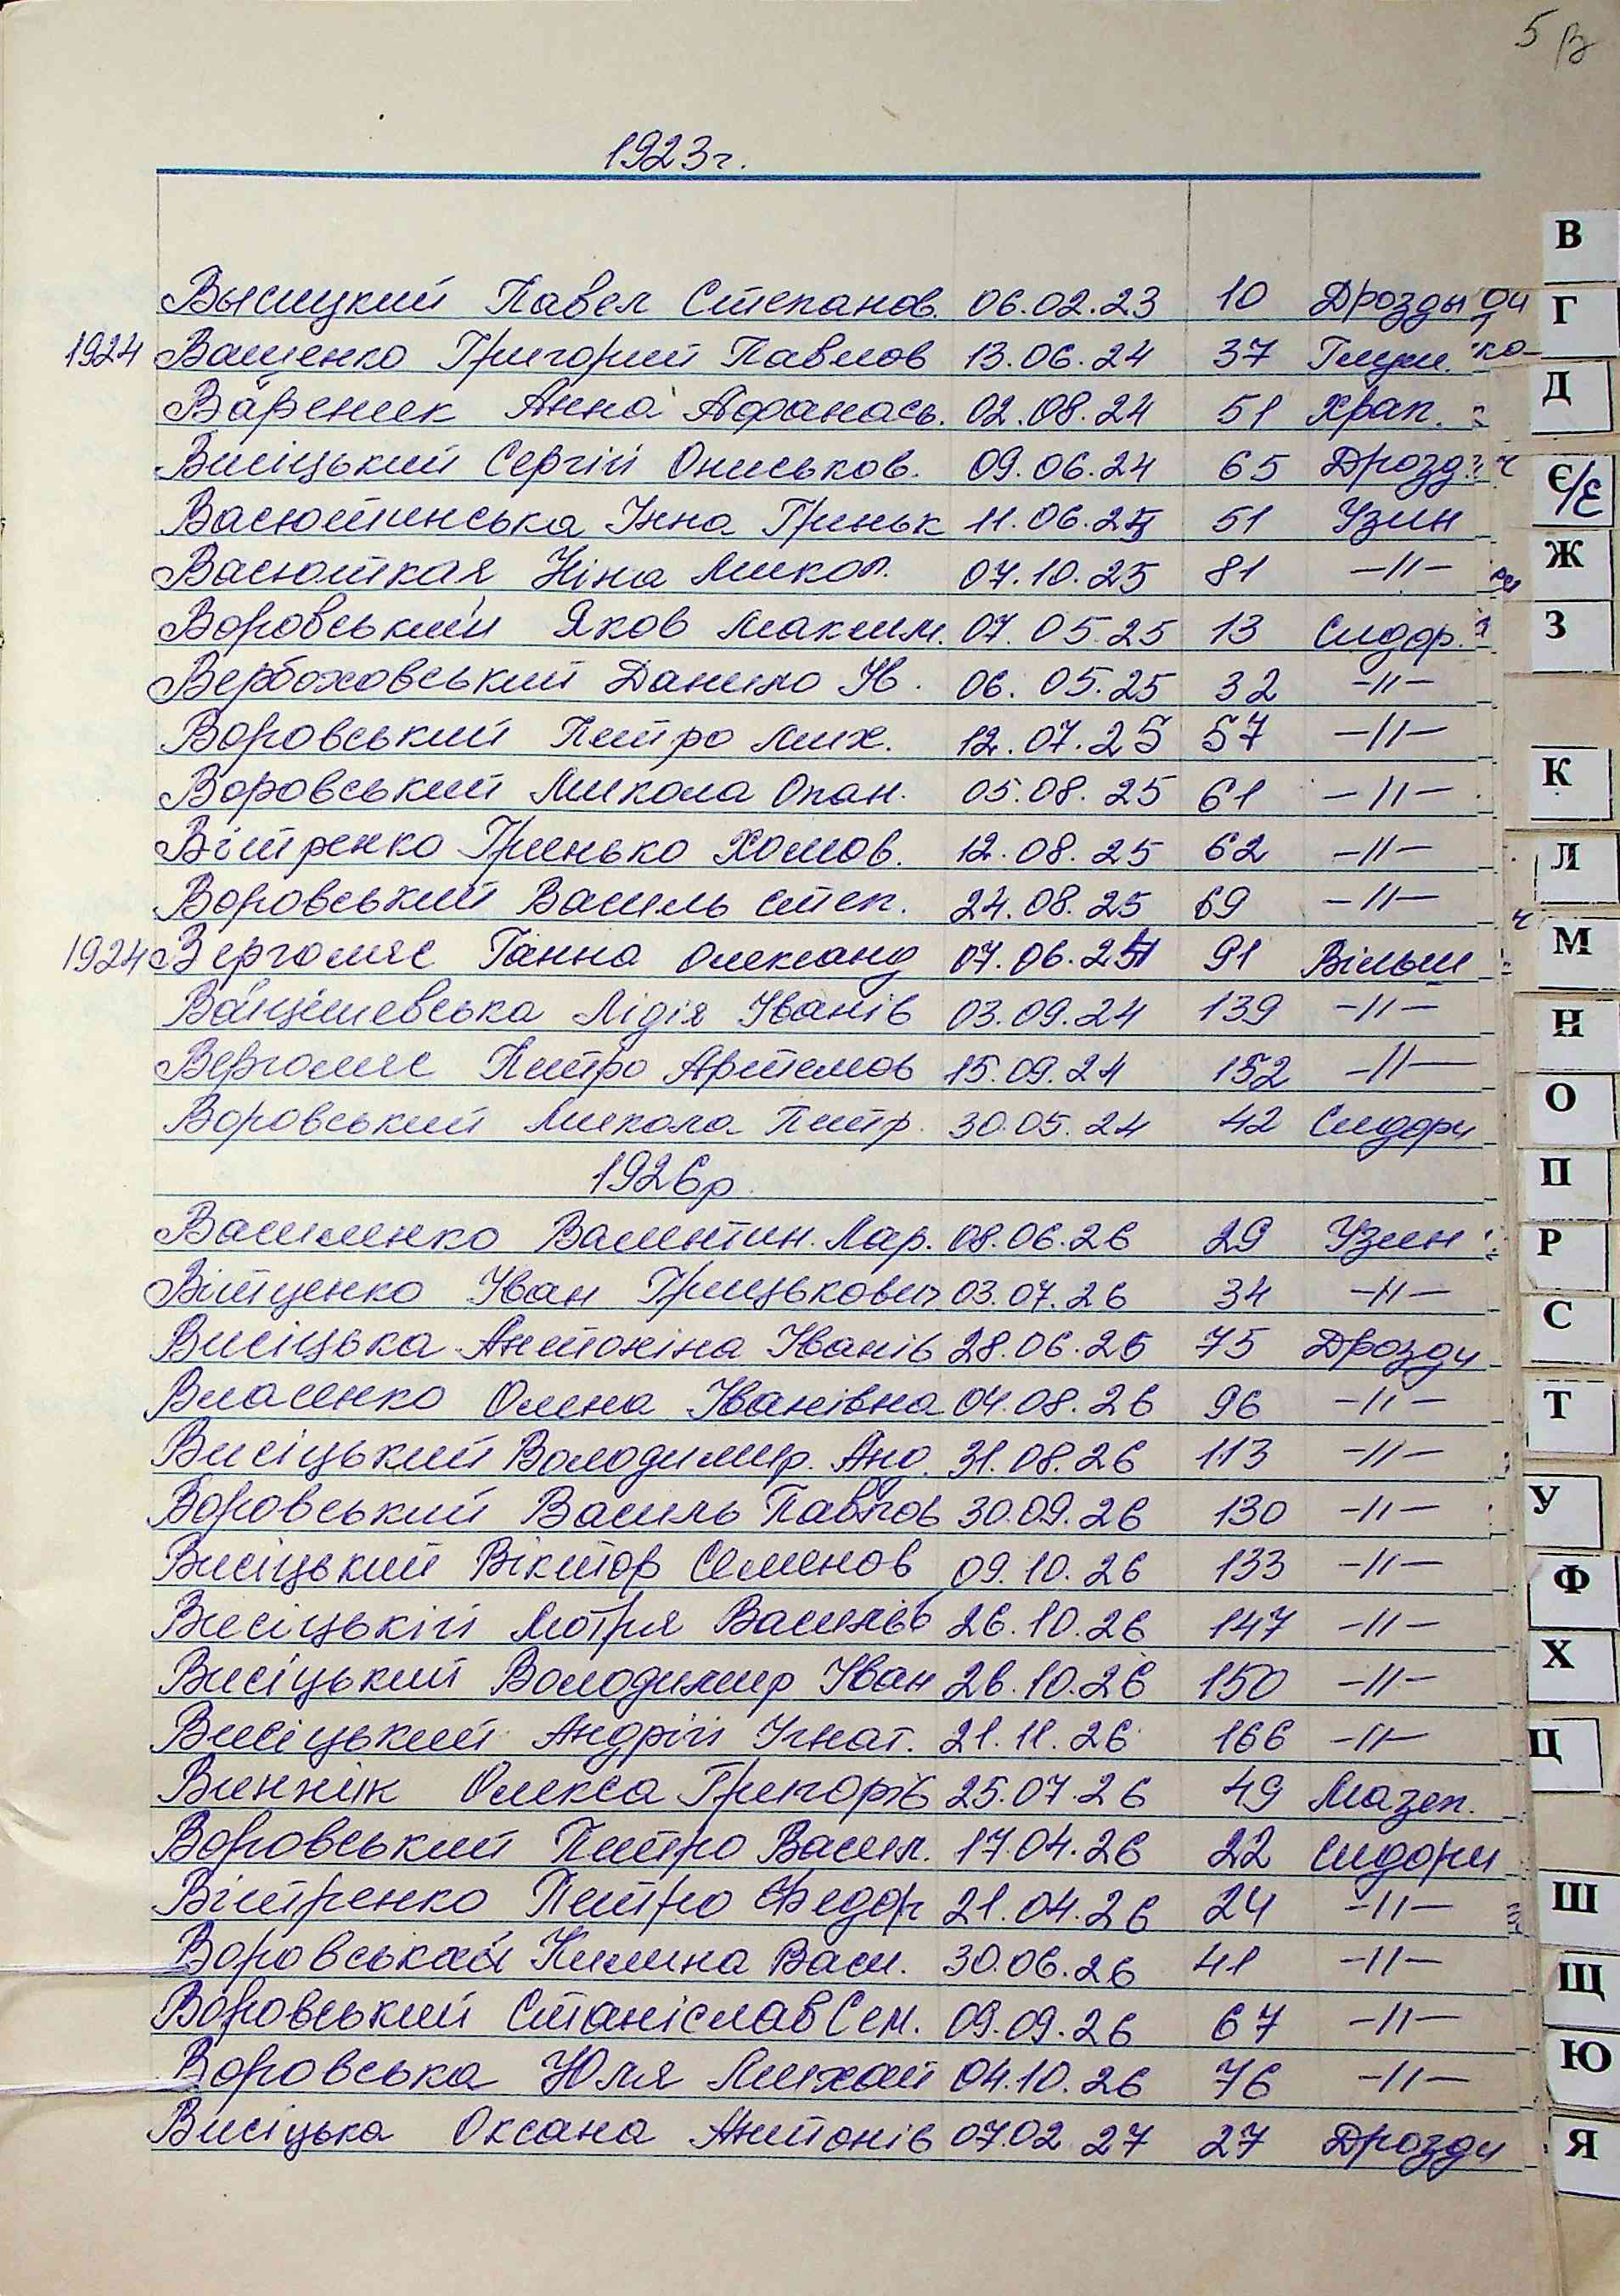 5 в
1923г.
Высицкий Павел Степанов. 06.02.23 10 Дрозды
1924 Ващенко Григорий Павлов 13.06.24 37 ко-
Вареник Анна Афанась. 02.08.24 51 Храп.
Висіцький Сергій Ониськов. 09.06.24 65 Дрозд.
Васютинська Інна Гриньк 11.06.25 51 Узин
Васюткая Ніна Микол. 07.10.25 81 -//-
Воровський Яков Максим. 07.05.25 13 Сидор.
Вербоховський Данило Ів. 06.05.25 32 -//-
Воровський Петро Мих. 12.07.25 57 -//-
Воровський Микола Опан. 05.08.25 61 -//-
Вітренко Гринько Хомов. 12.08.25 62 -//-
Воровський Василь Степ. 24.08.25 69 -//-
1924 Верголяс Ганна Олександ 07.06.24 91 Вільш
Вацішевська Лідія Іванів 03.09.24 139 -//-
Верголяс Петро Артемов 15.09.24 152 -//-
Воровський Микола Петр. 30.05.24 42 Сидори
1926р.
Василенко Валентин. Лар. 08.06.26 29 Узин
Вітценко Іван Грицькович 03.07.26 34 -//-
Висіцька Антоніна Іванів 28.06.26 75 Дрозди
Власенко Олена Іванівна 04.08.26 96 -//-
Висіцький Володимир. Анд. 31.08.26 113 -//-
Воровський Василь Павлов 30.09.26 130 -//-
Висіцький Віктор Семенов 09.10.26 133 -//-
Висіцькій Мотря Василів 26.10.26 147 -//-
Висіцький Володимир Іван 26.10.26 150 -//-
Висіцький Андрій Ігнат. 21.11.26 166 -//-
Винник Олекса Григорів 25.07.26 49 Мазеп.
Воровський Петро Васил. 17.04.26 22 Сидори
Вітренко Петро Федор 21.04.26 24 -//-
Воровська Килина Васи. 30.06.26 41 -//-
Воровський Станіслав Сем. 09.09.26 67 -//-
Воровська Юля Михай 04.10.26 76 -//-
Висіцька Оксана Антонів 07.02 27 27 Дрозди
В
Г
Д
Є/Е
Ж
З
К
Л
М
Н
О
П
Р
С
Т
У
Ф
Х
Ц
Ш
Щ
Ю
Я